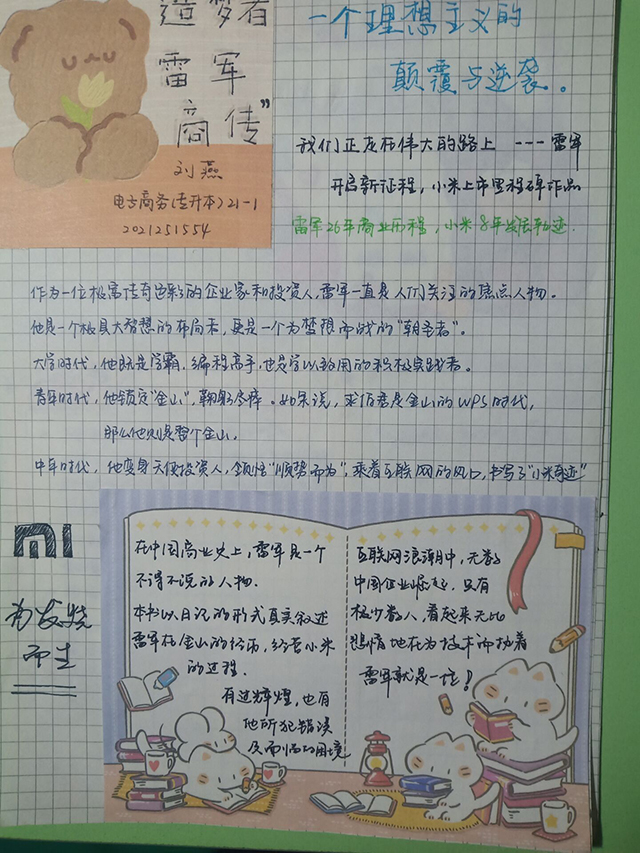 造梦者
雷军
商传”
刘燕
电子商务(专升本)21-1
2021251554
一个理想主义的
颠覆与逆袭。
我们正走在伟大的路上 --- 雷军
开启新征程,小米上市里程碑作品
雷军26年商业历程,小米8年发展轨迹.
作为一位极富传奇色彩的企业家和投资人,雷军一直是人们关注的焦点人物.
他是一个极具大智慧的布局者,更是一个为梦想而战的“朝圣者”.
大学时代,他既是学霸.编程高手,也是学以致用的积极实践者.
青年时代,他锁定“金山”,鞠躬尽瘁.如果说,求伯君是金山的WPS时代,
那么他则是整个金山.
中年时代,他变身天使投资人,领悟“顺势而为”,乘着互联网的风口,书写了“小米奇迹”
MI
为发烧
而生
在中国商业史上,雷军是一个
不得不说的人物.
本书以日记的形式真实叙述
雷军在金山的行而,经营小米
的过程.
有过辉煌,也有
他所犯错误
及面临的困境
互联网浪潮中,无数
中国企业崛起.只有
极少数人,看起来无比
悲情地在为技术而执着
雷军就是一位!